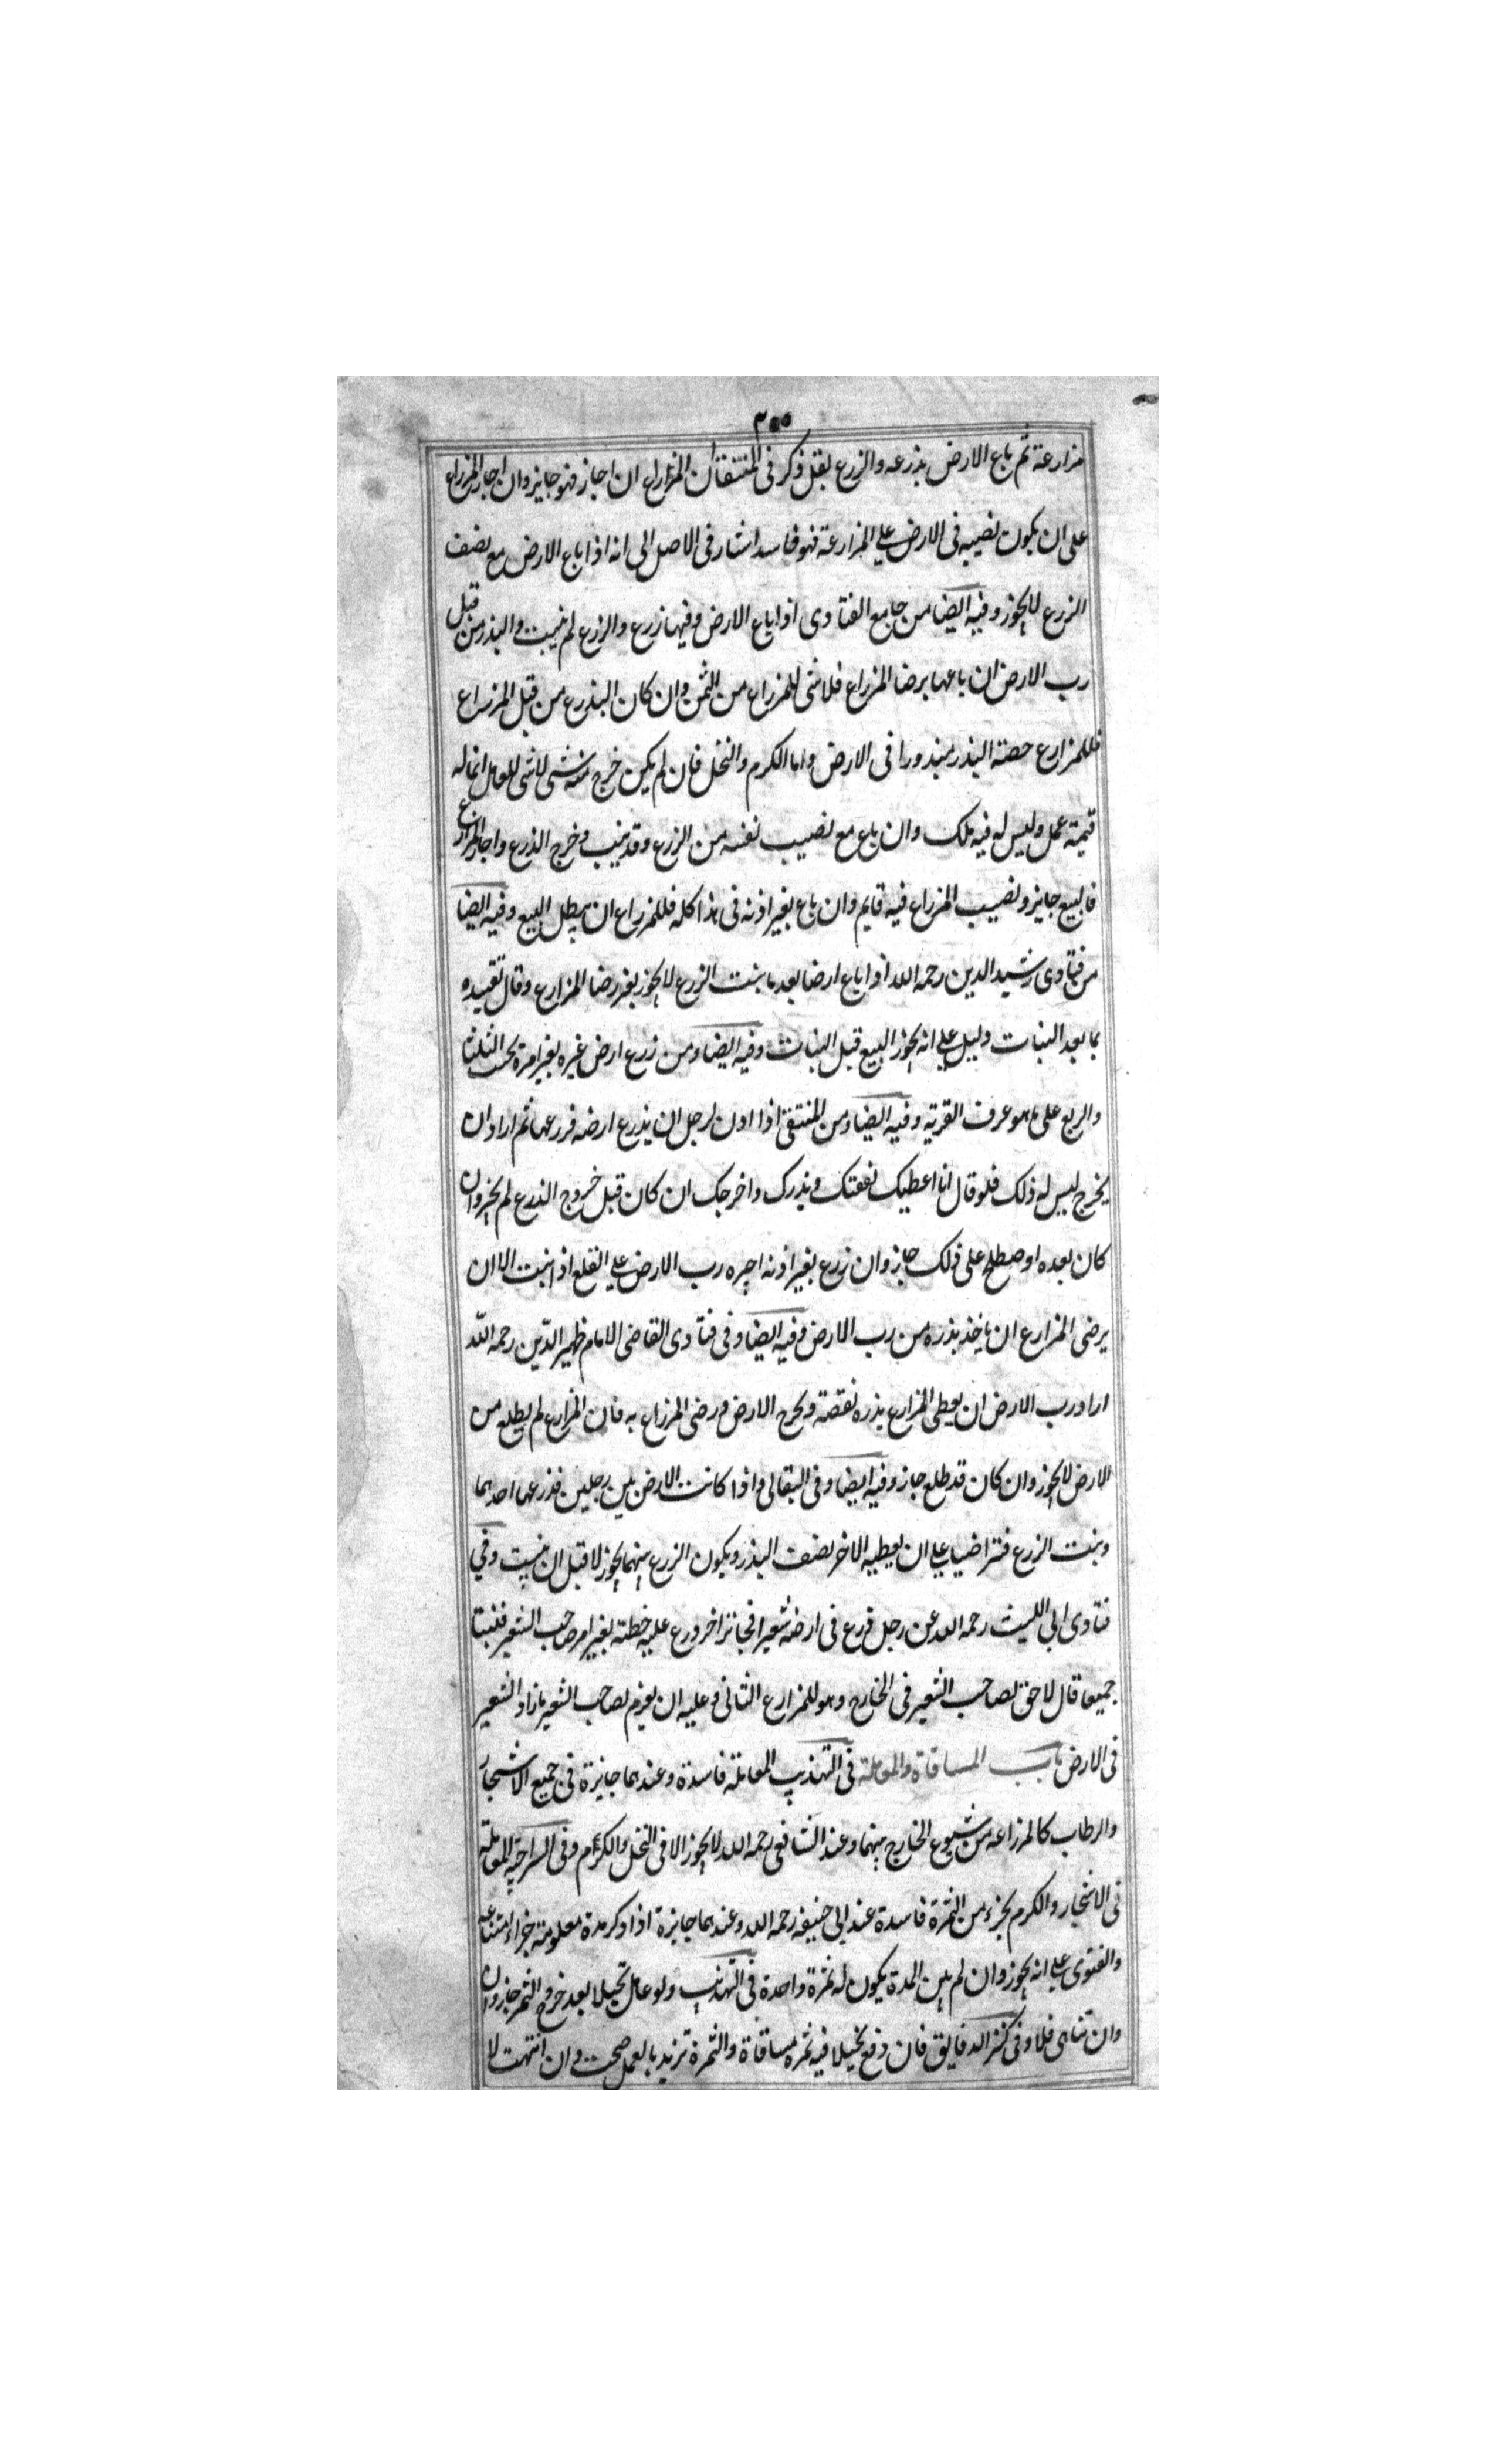 ٣٠٠
مزارعة ثم باع الارض بذرعه والزرع بقل ذكر فى المنتقة ان المزارع ان اجاز فهو جايز وان اجاز المزراع
على ان يكون نصيبه فى الارض على المزارعة فهو فاسد اشار فى الاصل الى انه اذا باع الارض مع نصف
الزرع لا يجوز وفيه ايضا من جامع الفتاوى اذا باع الارض وفيها زرع والزرع لم ينبت والبذر من قبل
رب الارض ان باعها برضا المزراع فلا شى للمزراع من الثمن وان كان البذرع من قبل المزراع
فللمزارع حصته البذر مبذورا فى الارض واما الكرم والنخل فان لم يكن خرج منه شى لا شى للعامل انما له
قيمة عمل وليس له فيه ملك وان باع مع نصيب نفسه من الزرع وقد ينب وخرج الذرع واجاز المزارع
فالبيع جايز ونصيب المزراع فيه قايم وان باع بغير اذنه فى هذا كله فللمزراع ان يبطل البيع وفيه ايضا
من فتاوى رشيد الدين رحمه الله اذا باع ارضا بعد ما بنت الزرع لا يجوز بغير رضا المزارع وقال تقييده
بما بعد النبات دليل على انه يجوز البيع قبل النبات وفيه ايضا ومن زرع ارض غيره بغير امره يجب الثلث
والربع على ما هو عرف القرية وفيه ايضا ومن المنتقى اذا اذن لرجل ان يذرع ارضه فزرعها ثم اراد ان
يخرج ليس له ذلك فلو قال انا اعطيك نفقتك وبذرك واخرجك ان كان قبل خروج الذرع لم يجز وان
كان بعده او صطلح على ذلك جاز وان زرع بغير اذنه اجبره رب الارض على القلع اذا نبت الا ان
يرضى المزارع ان ياخذ بذره من رب الارض وفيه ايضا وفى فتاوى القاضى الامام ظهير الدين رحمه الله
اراد رب الارض ان يعطى المزارع بذره نفقته ويخرج الارض ورضى المزراع به فان المزارع لم يطلع من
الارض لا يجوز وان كان قد طلع جاز وفيه ايضا وفى البقالى واذا كانت الارض بين رجلين فذرعها احدهما
وبنت الزرع فتراضيا على ان يعطيه الاخر نصف البذر ويكون الزرع بينهما يجوز لا قبل ان ينبت وفى
فتاوى ابى الليث رحمه الله عن رجل زرع فى ارضه شعيرا فجائز اخر وزرع عليه حنطة بغير امر صاحب الشعير فنبتا
جميعا قال لا حق لصاحب الشعير فى الخارج وهو للمزارع الثانى وعليه ان يغرم لصاحب الشعير ما زاد الشعير
فى الارض باب المساقاة والمعاملة فى التهذيب المعاملة فاسدة وعندهما جايزة فى جميع الاشجار
والرطاب كالمزراعه من شيوع الخارج بينهما وعند الشافعى رحمه الله لا يجوز الا فى النخل والكرم وفى السراجيه المعاملة
فى الاشجار والكرم بجزء من الثمرة فاسدة عند ابى حنيفه رحمه الله وعندهما جايزة اذا ذكر مدة معلومة جزاء مشاعه
والفتوى على انه يجوز وان لم يبين المدة يكون له ثمرة واحدة فى التهذيب ولو عامل نخيلا بعد خروج الثمر جاز وان
وان تناهى فلا وفى كنز الدقايق فان دفع نخيلا فيه ثمره مساقاة والثمرة تزيد بالعمل صحت وان انتهت لا